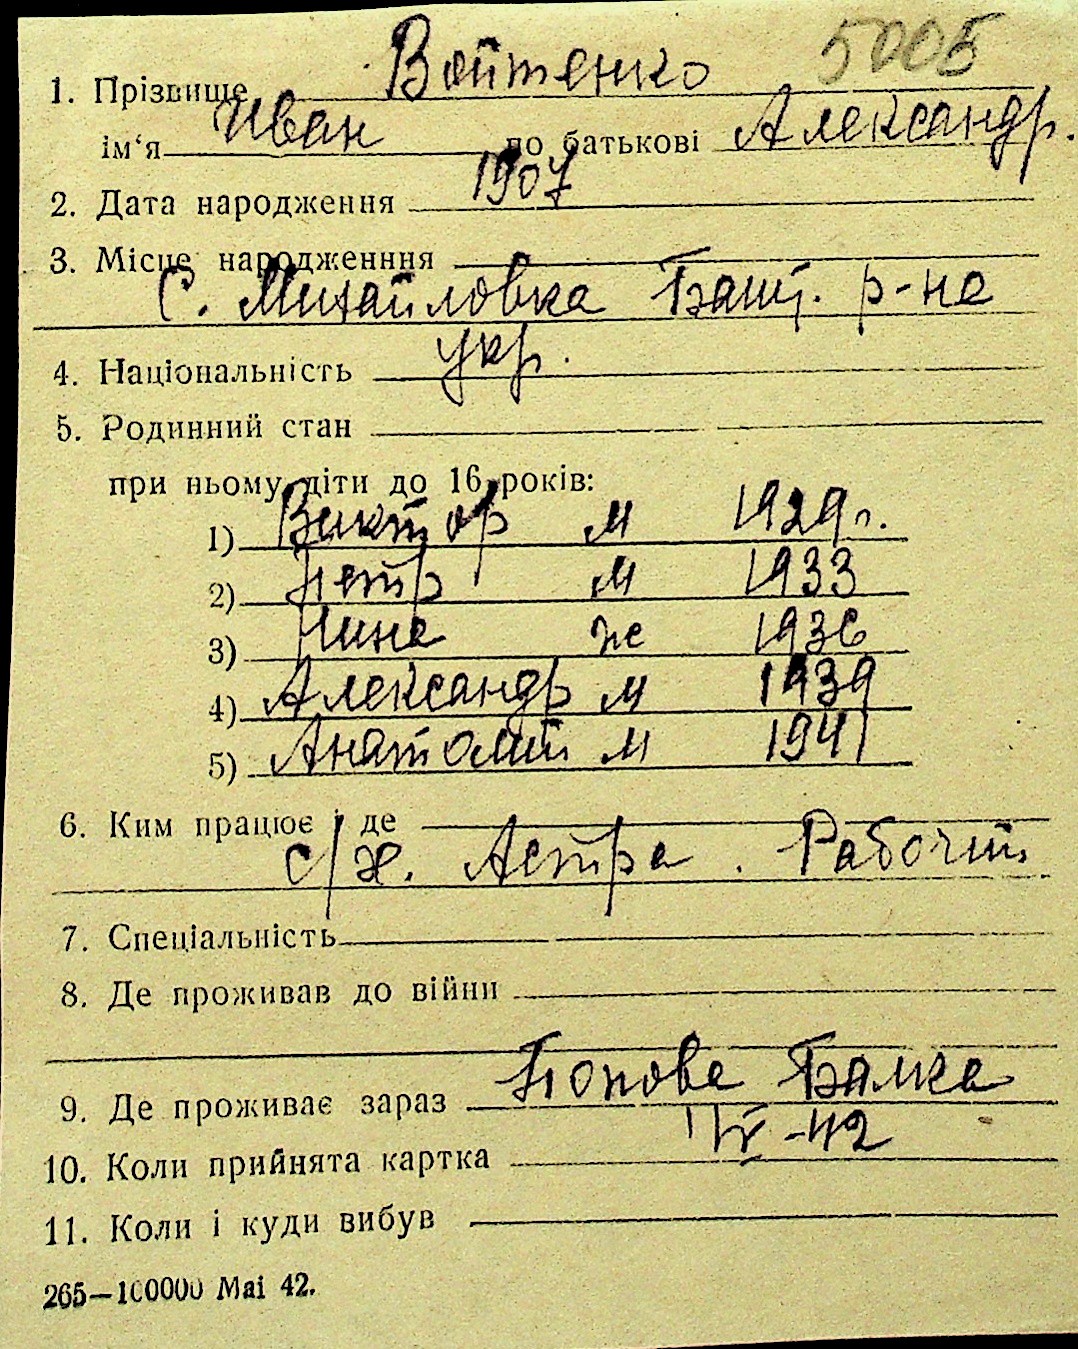 5005
1. Прізвище Войтенко
ім‘я Иван по батькові Александр.
2. Дата народження 1907
3. Місце народженння
с. Михайловка Башт. р-на
4. Національність укр.
5. Родинний стан
при ньому діти до 16 років:
1) Виктор м 1929 г.
2) Петр м 1933
3) Нина ж 1936
4) Александр м 1939
5) Анатолий м 1941
6. Ким працює і де
с/х. Астра. Рабочий
7. Спеціальність
8. Де проживав до війни
9. Де проживає зараз Попова Балка
10. Коли прийнята картка -42
11. Коли і куди вибув
265—100000 Mai 42.